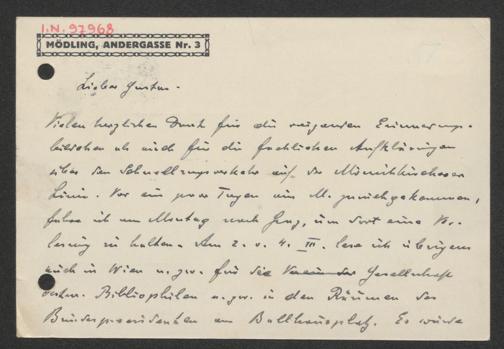 I.N. 97968
MÖDLING, ANDERGASSE Nr. 3
Lieber Gustav.
Vielen herzlichen Dank für die reizenden Erinnerungs-
bildchen als auch für die fachlichen Aufklärungen
über den Schnellzugsverkehr auf der
Linie. Vor ein paar Tagen aus M. zurückgekommen,
fahre ich am Montag nach Graz, um dort eine Vor-
lesung zu halten. Am 2. u. 4. III. lese ich übrigens
auch in Wien u. zw. für die Gesellschaft
Bibliophilen u. zw. in den Räumen des
Bundespraesidenten am Ballhausplatz. Es würde